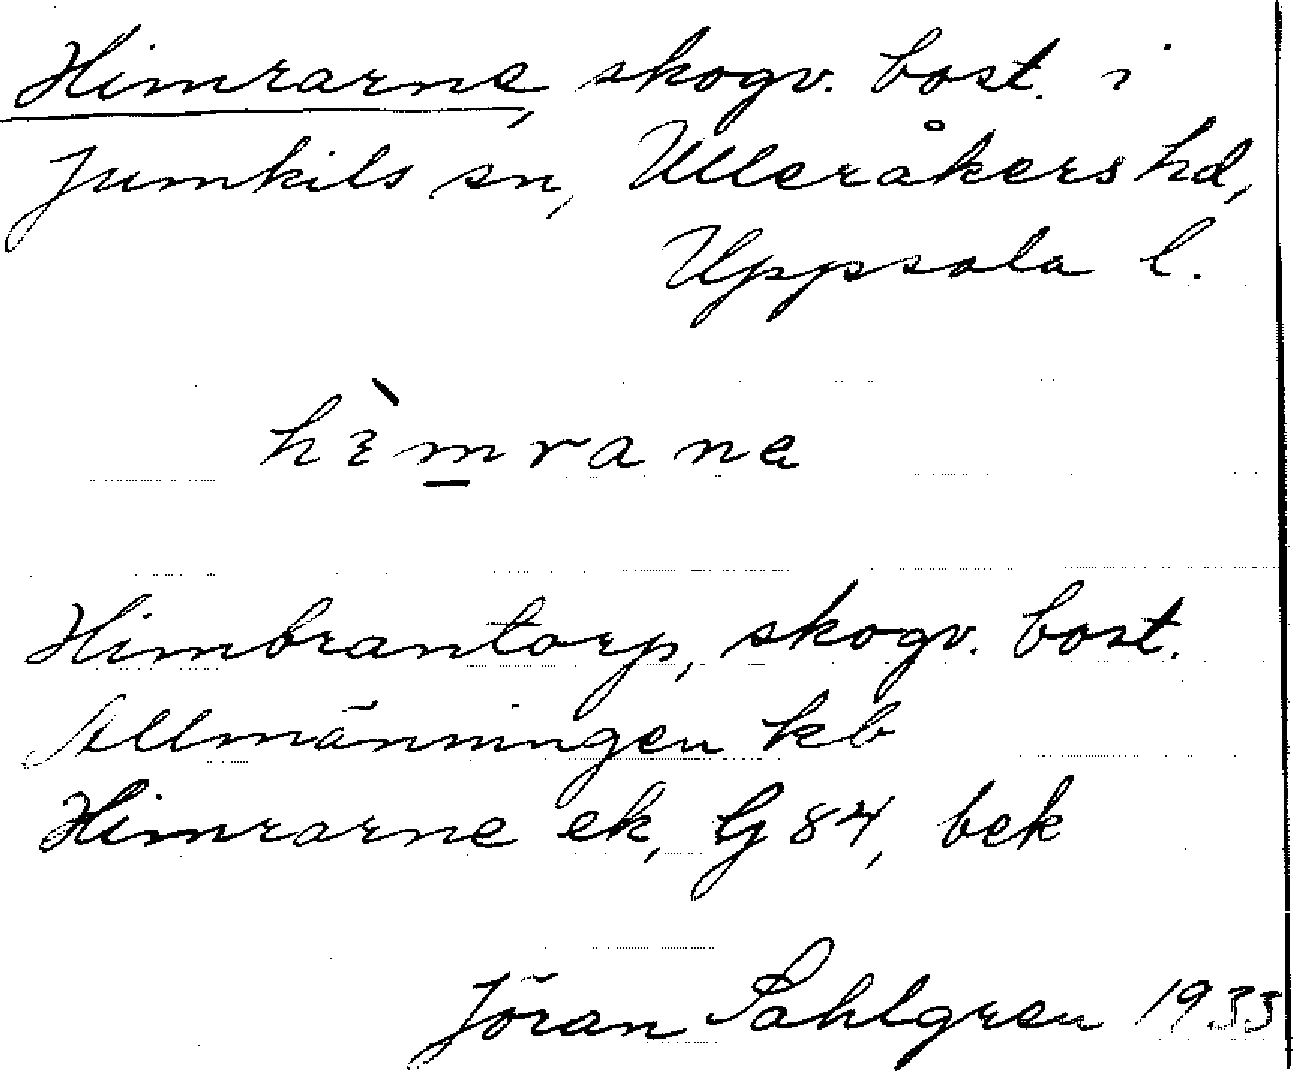 Himrarne, skogv. bost. i
Jumkils sn, Ulleråkers hd,
Uppsala l.
hìmrana
Himbrantorp, skogv. bost.
Allmänningen kb
Himrarne ek, G 84, bek
Jöran Sahlgren 1935